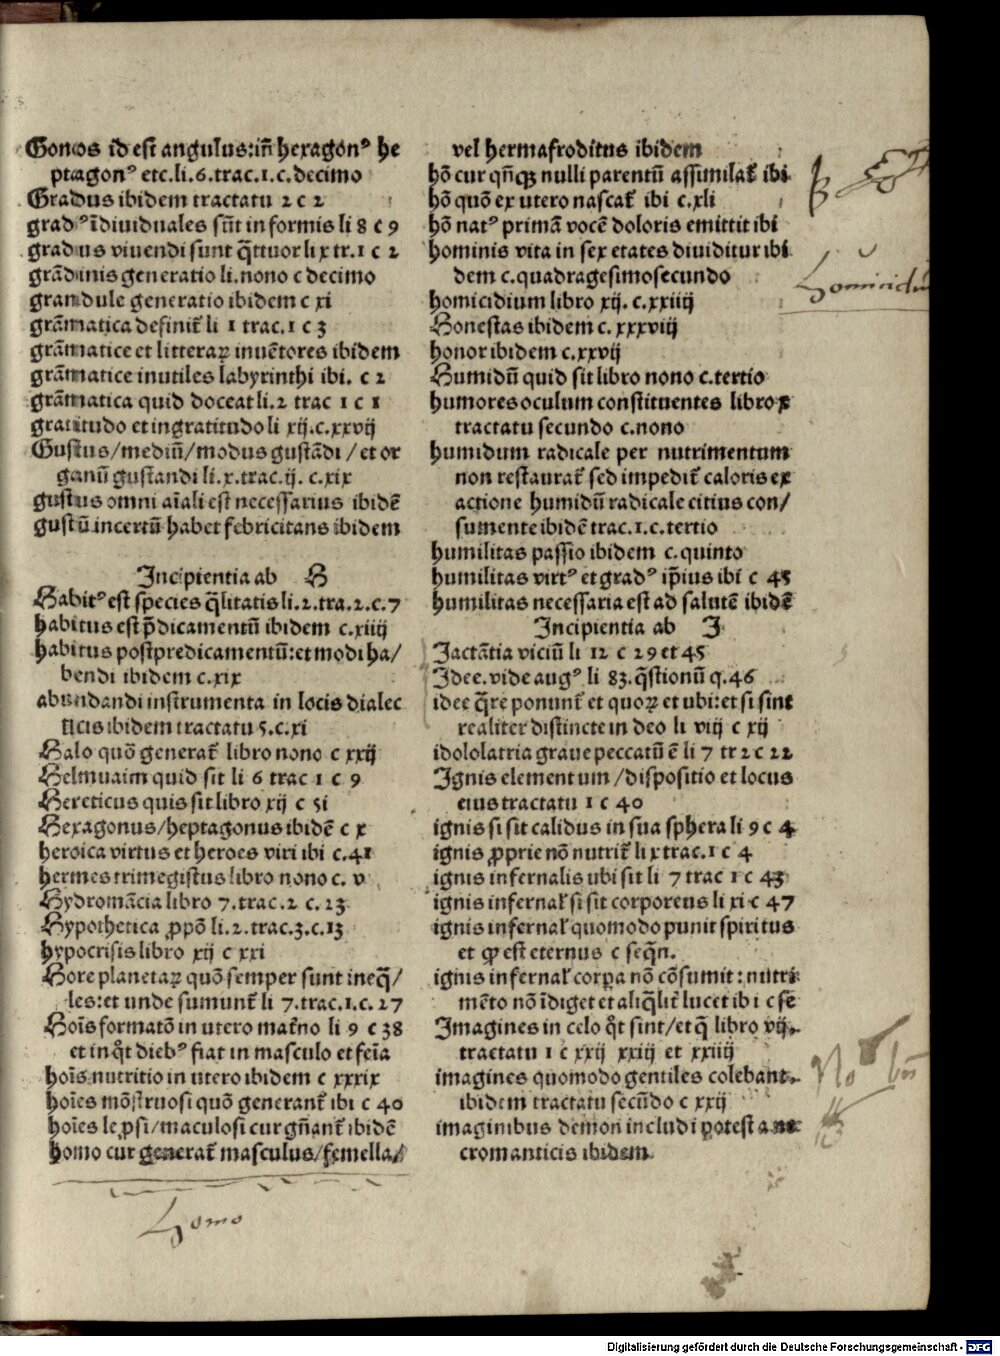 Gonos id est angulus:iñ hexagonꝰ he
ptagonꝰ etc.li.6.trac.1.c.decimo
Gradus ibidem tractatu 2 c 2
gradꝰ īdiuiduales sūt in formis li 8 c 9
gradus viuendi sunt q̄ttuor li x tr.1 c 2
grādinis generatio li.nono c decimo
grandule generatio ibidem c xi
grāmatica definit̄ li 1 trac.1 c 3
grāmatice et litteraꝝ inuētores ibidem
grāmatice inutiles labyrinthi ibi. c 2
grāmatica quid doceat li.2 trac 1 c 1
gratitudo et ingratitudo li xij.c.xxvij
Gustus/mediū/modus gustādi/et or
ganū gustandi li.x.trac.ij. c.xix
gustus omni aīali est necessarius ibidē
gustū incertū habet febricitans ibidem
Incipientia ab H
Habitꝰ est species q̄litatis li.2.tra.2.c.7
habitus est p̄dicamentū ibidem c.xiiij
habitus postpredicamentū:et modi ha/
bendi ibidem c.xix
abundandi instrumenta in locis dialec
ticis ibidem tractatu 5.c.xi
Halo quō generat̄ libro nono c xxij
Helmuaim quid sit li 6 trac 1 c 9
Hereticus quis sit libro xij c 51
Hexagonus/heptagonus ibidē c x
heroica virtus et heroes viri ibi c.41
hermes trimegistus libro nono c. v
Hydromācia libro 7.trac.2 c.13
Hypothetica ꝓpō li.2.trac.3.c.13
hypocrisis libro xij c xxi
Hore planetaꝝ quō semper sunt ineq̄/
les:et unde sumunt̄ li 7.trac.1.c.27
Hoīs formatō in utero mat̄no li 9 c 38
et in q̊t diebꝰ fiat in masculo et feīa
hoīs nutritio in utero ibidem c xxxix
hoīes mōstruosi quō generant̄ ibi c 40
hoīes leꝓsi/maculosi cur gn̄ant̄ ibidē
homo cur generat̄ masculus/femella/
Homo
vel hermafroditus ibidem
hō cur qn̄qꝫ nulli parentū assimilat̄ ibi
hō quō ex utero nascat̄ ibi c.xli
hō natꝰ primā vocē doloris emittit ibi
hominis vita in sex etates diuiditur ibi
dem c.quadragesimosecundo
homicidium libro xij. c.xxiiij
Honestas ibidem c. xxxviij
honor ibidem c.xxvij
Humidū quid sit libro nono c.tertio
humores oculum constituentes libro x
tractatu secundo c.nono
humidum radicale per nutrimentum
non restaurat̄ sed impedit̄ caloris ex
actione humidū radicale citius con/
sumente ibidē trac.1.c.tertio
humilitas passio ibidem c.quinto
humilitas virtꝰ et gradꝰ ip̄ius ibi c 45
humilitas necessaria est ad salutē ibidē
Incipientia ab I
Iactātia viciū li 12 c 29 et 45
Idee.vide augꝰ li 83.q̄stionū q.46
idee q̄re ponunt̄ et quoꝝ et ubi:et si sint
realiter distincte in deo li viij c xij
idololatria graue peccatū ē li 7 tr 2 c 22
Ignis elementum/dispositio et locus
eius tractatu 1 c 40
ignis si sit calidus in sua sphera li 9 c 4
ignis ꝓprie nō nutrit̄ li x trac.1 c 4
ignis infernalis ubi sit li 7 trac 1 c 43
ignis infernaꝉ si sit corporeus li xi c 47
ignis infernaꝉ quomodo punit spiritus
et ꝙ est eternus c seqn̄.
ignis infernaꝉ corꝑa nō cōsumit:nutri
mēto nō īdiget et aliq̄lit̄ lucet ibi c sē
Imagines in celo q̊t sint/et q̄ libro vij.
tractatu 1 c xxij xxiij et xxiiij
imagines quomodo gentiles colebant.
ibidem tractatu secūdo c xxij
imaginibus demon includi potest a ne
cromanticis ibidem
Homicidiū
No
Digitalisierung gefördert durch die Deutsche Forschungsgemeinschaft - DFG